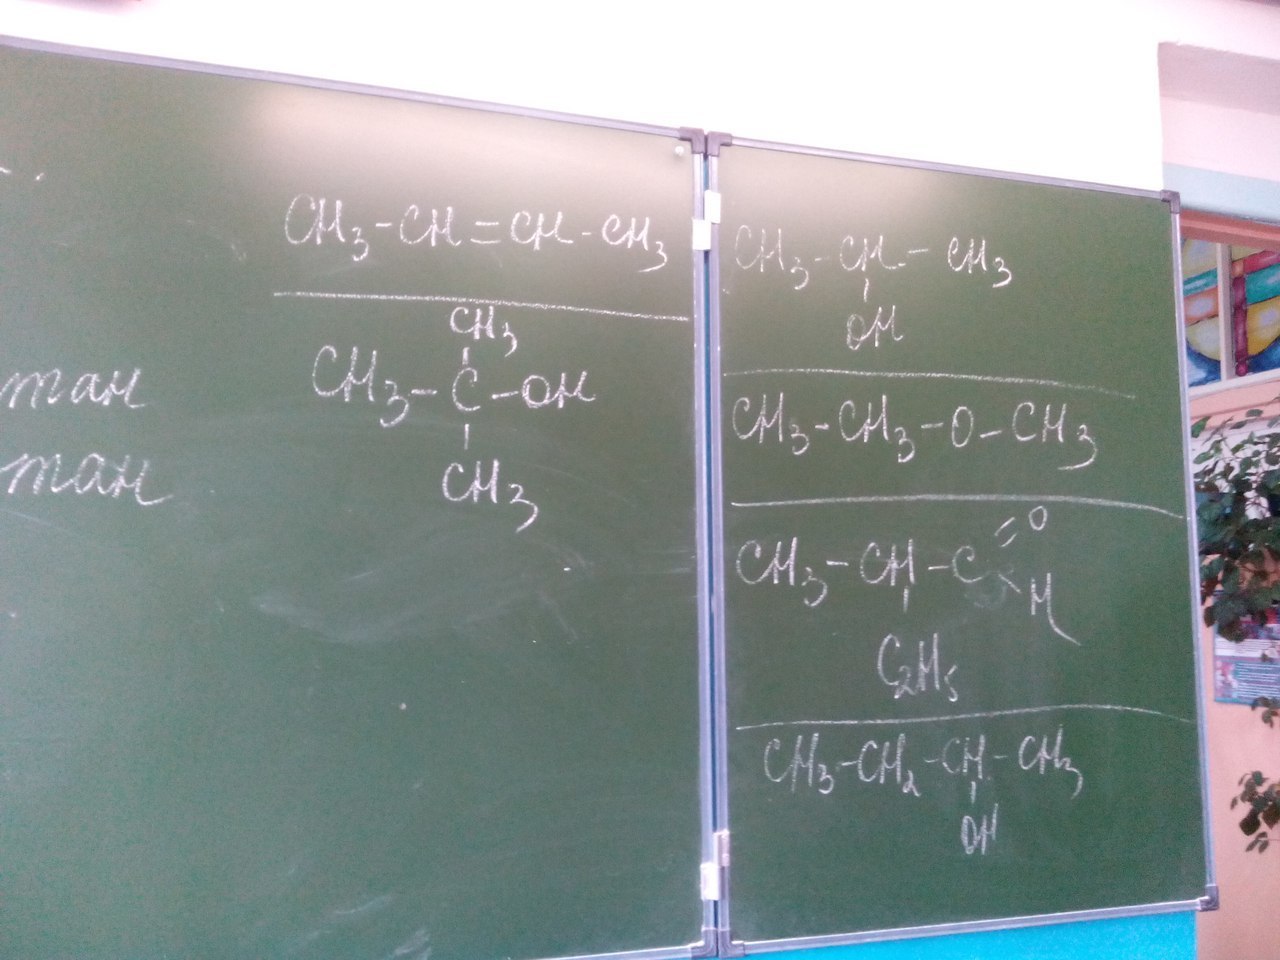 CH3-CH=CH-CH3
CH3
CH3-C-OH
CH3
тан
тан
CH3-CH-CH3
OH
CH3-CH3-O-CH3
CH3-CH-C=O
H
C2H5
CH3-CH2-CH-CH3
OH